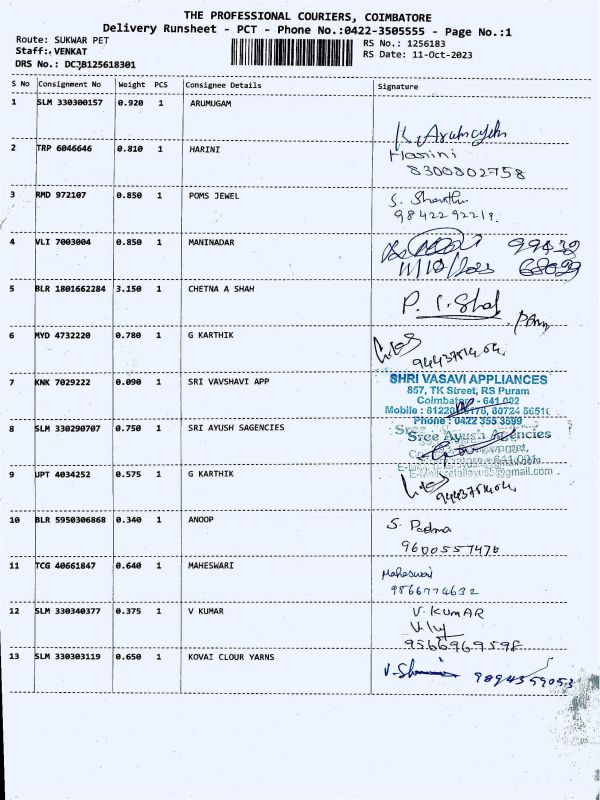 THE PROFESSIONAL COURIERS, COIMBATORE
Delivery Runsheet - PCT - Phone No.:0422-3505555 - Page No.:1
Route: SUKWAR PET
Staff: VENKAT
DRS No.: DCJB125618301
RS No.: 1256183
RS Date: 11-Oct-2023
S No Consignment No Weight PCS Consignee Details Signature
1 SLM 330300157 0.920 1 ARUMUGAM
2 TRP 6046646 0.810 1 HARINI Harini
8300802758
3 RMD 972107 0.850 1 POMS JEWEL
4 VLI 7003004 0.850 1 MANINADAR
11/10/2023
5 BLR 1801662284 3.150 1 CHETNA A SHAH P. I. Shah
6 MYD 4732220 0.780 1 G KARTHIK
7 KNK 7029222 0.090 1 SRI VAVSHAVI APP
SHRI VASAVI APPLIANCES
857, TK Street, RS Puram
Coimbatore - 641 002
Phone : 0422 355 3599
8 SLM 330290707 0.750 1 SRI AYUSH SAGENCIES
Sree Ayush Agencies
9 UPT 4034252 0.575 1 G KARTHIK
10 BLR 5950306868 0.340 1 ANOOP S. Padma
9600557476
11 TCG 40661847 0.640 1 MAHESWARI Maheswari
9566774632
12 SLM 330340377 0.375 1 V KUMAR V. KUMAR
9566969598
13 SLM 330303119 0.650 1 KOVAI CLOUR YARNS
9894359053